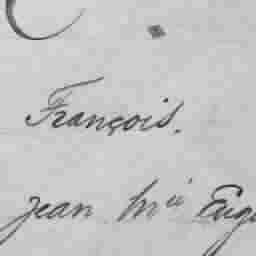 François.
Jean Mie Eugè